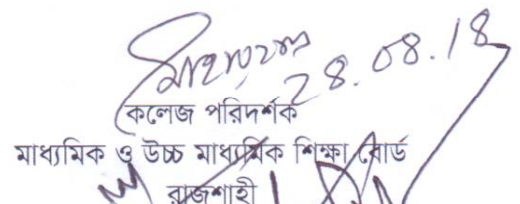 28.08.18
কলেজ পরিদর্শক
মাধ্যমিক ও উচ্চ মাধ্যমিক শিক্ষা বোর্ড
রাজশাহী